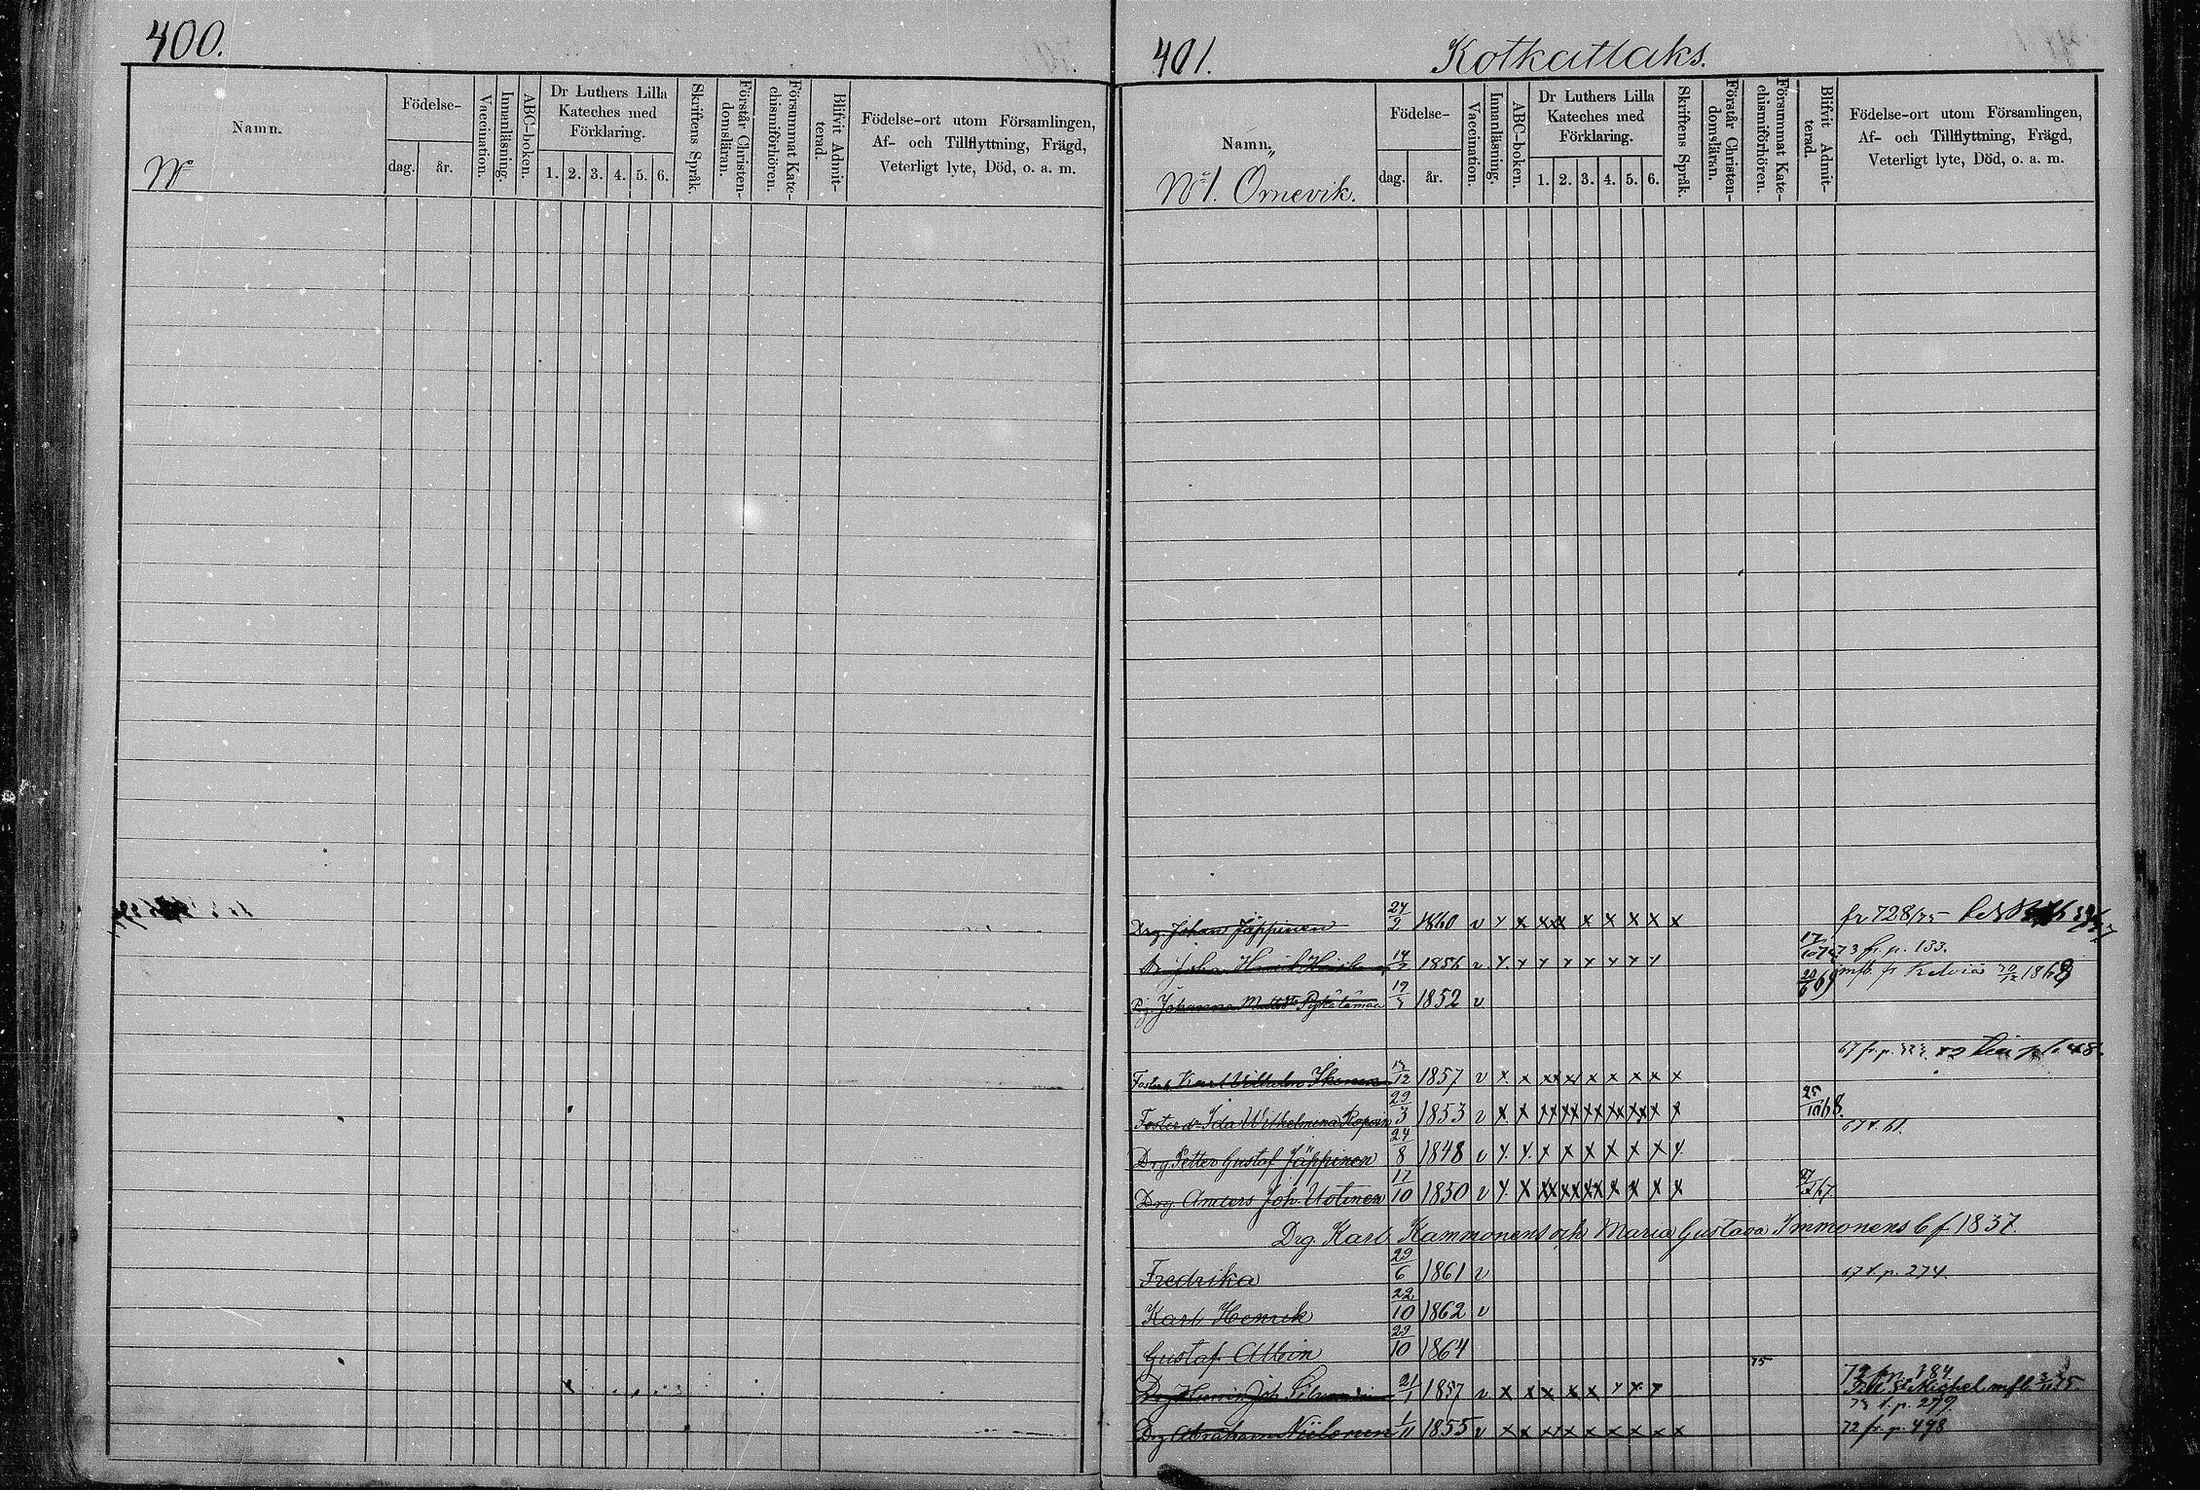 400.
Namn.
No
Födelse-
dag.
år.
Vaccination.
Innanläsning.
ABC-boken.
Dr Luthers Lilla
Kateches med
Förklaring.
1. 2. 3. 4. 5. 6.
Skriftens Språk.
Förstår Christen-
domsläran.
Försummat Kate-
chismiförhören.
Blifvit Admit-
terad.
Födelse-ort utom Församlingen,
Af- och Tillflyttning, Frägd,
Veterligt lyte, Död, o. a. m.
401.
Kotkatlaks.
Namn.
No 1. Ornevik.
Födelse-
dag.
år.
Vaccination.
Innanläsning.
ABC-boken.
Dr Luthers Lilla
Kateches med
Förklaring.
1. 2. 3. 4. 5. 6.
Skriftens Språk.
Förstår Christen-
domsläran.
Försummat Kate-
chismiförhören.
Blifvit Admit-
terad.
Födelse-ort utom Församlingen,
Af- och Tillflyttning, Frägd,
Veterligt lyte, Död, o. a. m.
Drg. Johan Jäppinen 1860 v x x x x x x x x x fr 728/75
1856 v 73 fr. p. 133.
Johanna 19 1852 v mfb. fr Kelviå 1868
67 fr. p.
Karl Vilhelm Ikonen 12 1857 v x x x x x x x x x
Foster dr Ida Wilhelmina 29/3 1853 v x x x x x x x x x 25/10 68.
Drg Petter Gustaf Jäppinen 24/8 1848 v x x x x x x x x x 67 t. 61.
Drg. Anders Joh. Uotinen 17/10 1850 v x x x x x x x x x 67.
Drg. Karl Kammonens och Maria Gustava Immonens b f. 1837.
Fredrika 29/6 1861 v 67 t. p. 274.
Karl Henrik 22/10 1862 v
Gustaf Albin 29/10 1864
75
Drg Joh 21/1 1857 v x x x x x x x x 184
St Michel mfb. 75.
73 t. p. 279
Drg Abraham Niilonen 1/11 1855 v x x x x x x x x x 72 fr. p. 498